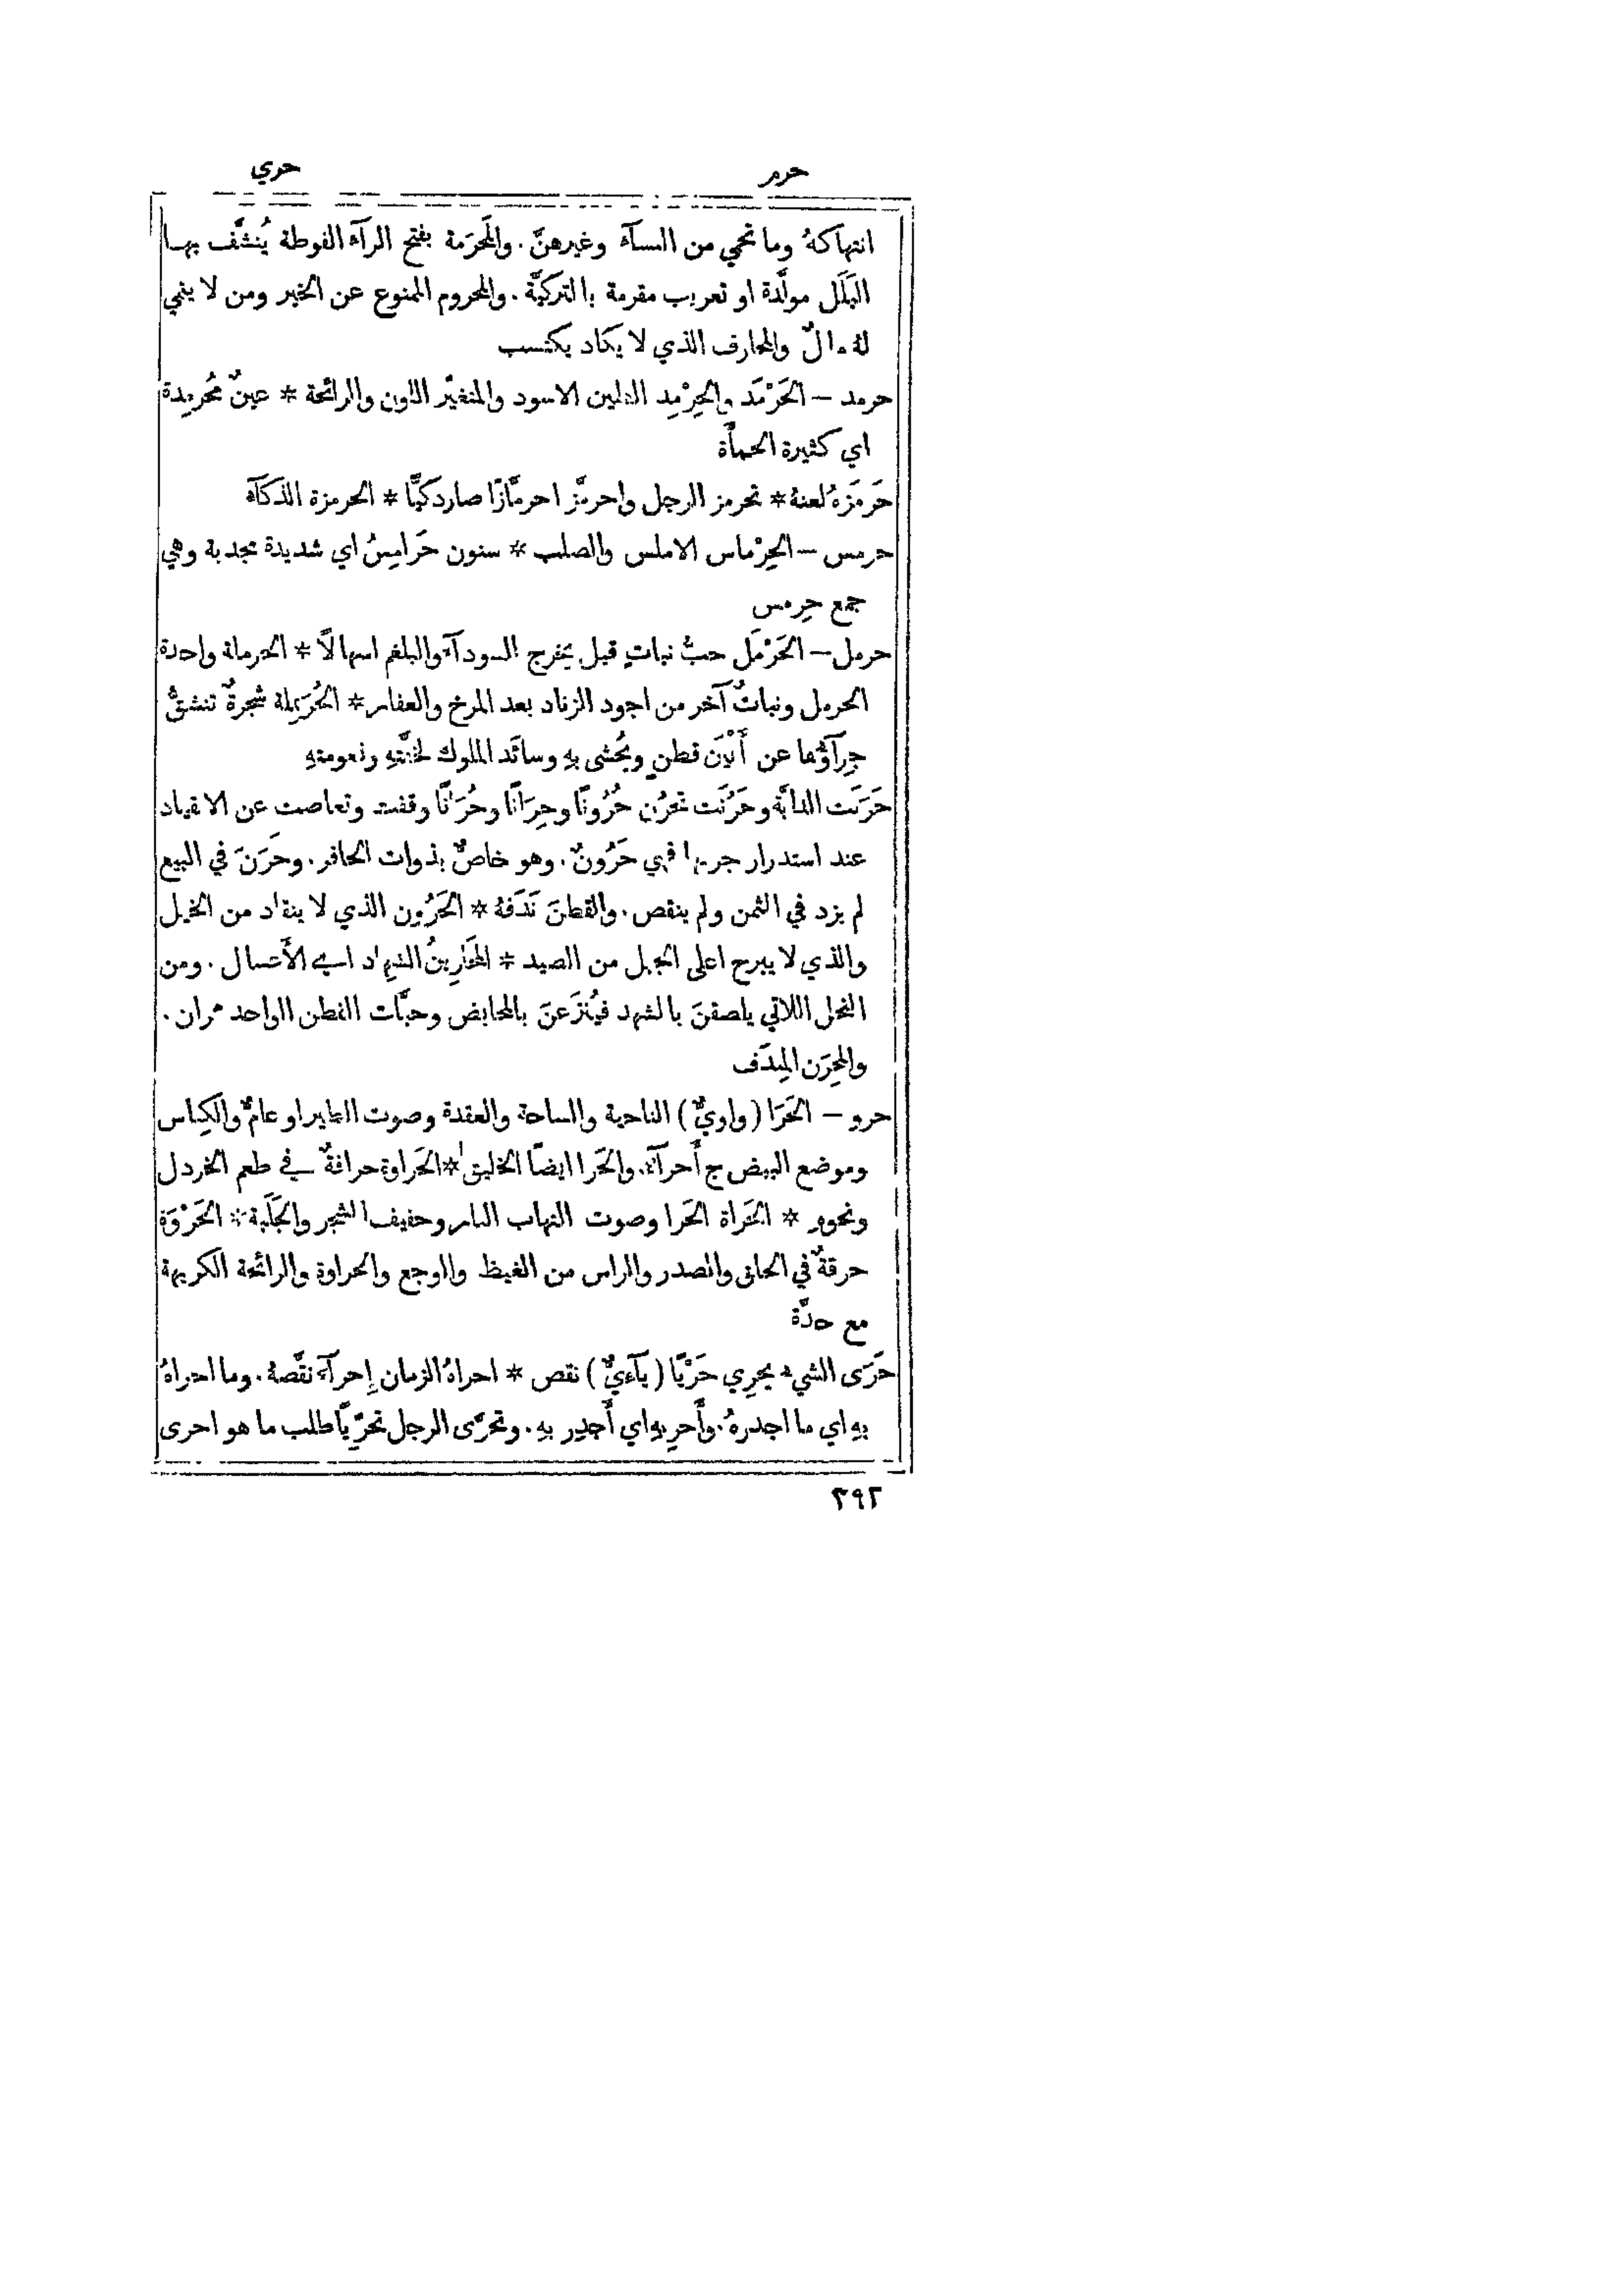 حرم حري
انتهاكهُ وما تحمي من النسآء وغيرهنَّ. والمَحرَمة بفتح الرآء الفوطة يُنشَّف بها
البَلَل مولَّدة او تعريب مقرمة بالتركيَّة. والمحروم الممنوع عن الخير ومن لا ينمي
لهُ مالٌ والمحارف الذي لا يكاد يكتسب
حرمد – الحَرْمَد والحِرْمِد الطين الاسود والمتغيّر اللون والرائحة * عينٌ مُحرمِدة
اي كثيرة الحمأَة
حَرمَزهُ لعنهُ * تحرمز الرجل واحرمَّز احرمَّازًا صار ذكيًّا * الحرمزة الذكآء
حرمس – الحِرْماس الاملس والصلب * سنون حَرامِسُ اي شديدة مجدبة وهي
جمع حِرمس
حرمل – الحَرْمَل حبُّ نباتٍ قيل يخرج السودآء والبلغم اسهالًا * الحرملة واحدة
الحرمل ونباتٌ آخر من اجود الزناد بعد المرخ والعفار * الحُرَيملة شجرةٌ تنشقُّ
جِرآؤُها عن أَلْيَن قطنٍ ويُحشى بهِ وسائد الملوك لخفَّتهِ ونعومتهِ
حَرَنَت الدابَّة وحَرُنَت تحرُن حُرُونًا وحِرَانًا وحُرَانًا وقفت وتعاصت عن الانقياد
عند استدرار جريها فهي حَرُونٌ. وهو خاصٌّ بذوات الحافر. وحَرَنَ في البيع
لم يزد في الثمن ولم ينقص. والقطنَ نَدَفهُ * الحَرُون الذي لا ينقاد من الخيل
والذي لا يبرح اعلى الجبل من الصيد * المَحَارِينُ الشهاد اي الأَعسال. ومن
النحل اللاتي يلصقنَ بالشهد فيُنزَعنَ بالمحابض وحبَّات القطن الواحد محران.
والمِحرَن المِندَف
حرو – الحَرَا (واويٌّ) الناحية والساحة والعقدة وصوت الطير او عامٌّ والكِناس
وموضع البيض ج أَحرآء. والحَرا ايضًا الخليق * الحَراوة حرافةٌ في طعم الخردل
ونحوهِ * الحَراة الحَرا وصوت التهاب النار وحفيف الشجر والجَلَبة * الحَرْوَة
حرقةٌ في الحلق والصدر والراس من الغيظ والوجع والحراوة والرائحة الكريهة
مع حدَّة
حَرَى الشيء يحرِي حَرْيًا (يآءيٌّ) نقص * احراهُ الزمان إِحرآءً نقَّصهُ. وما احراهُ
بهِ اي ما اجدرهُ. وأَحرِ بهِ اي أَجدِر بهِ. وتحرَّى الرجل تحرّيًا طلب ما هو احرى
٣٩٢